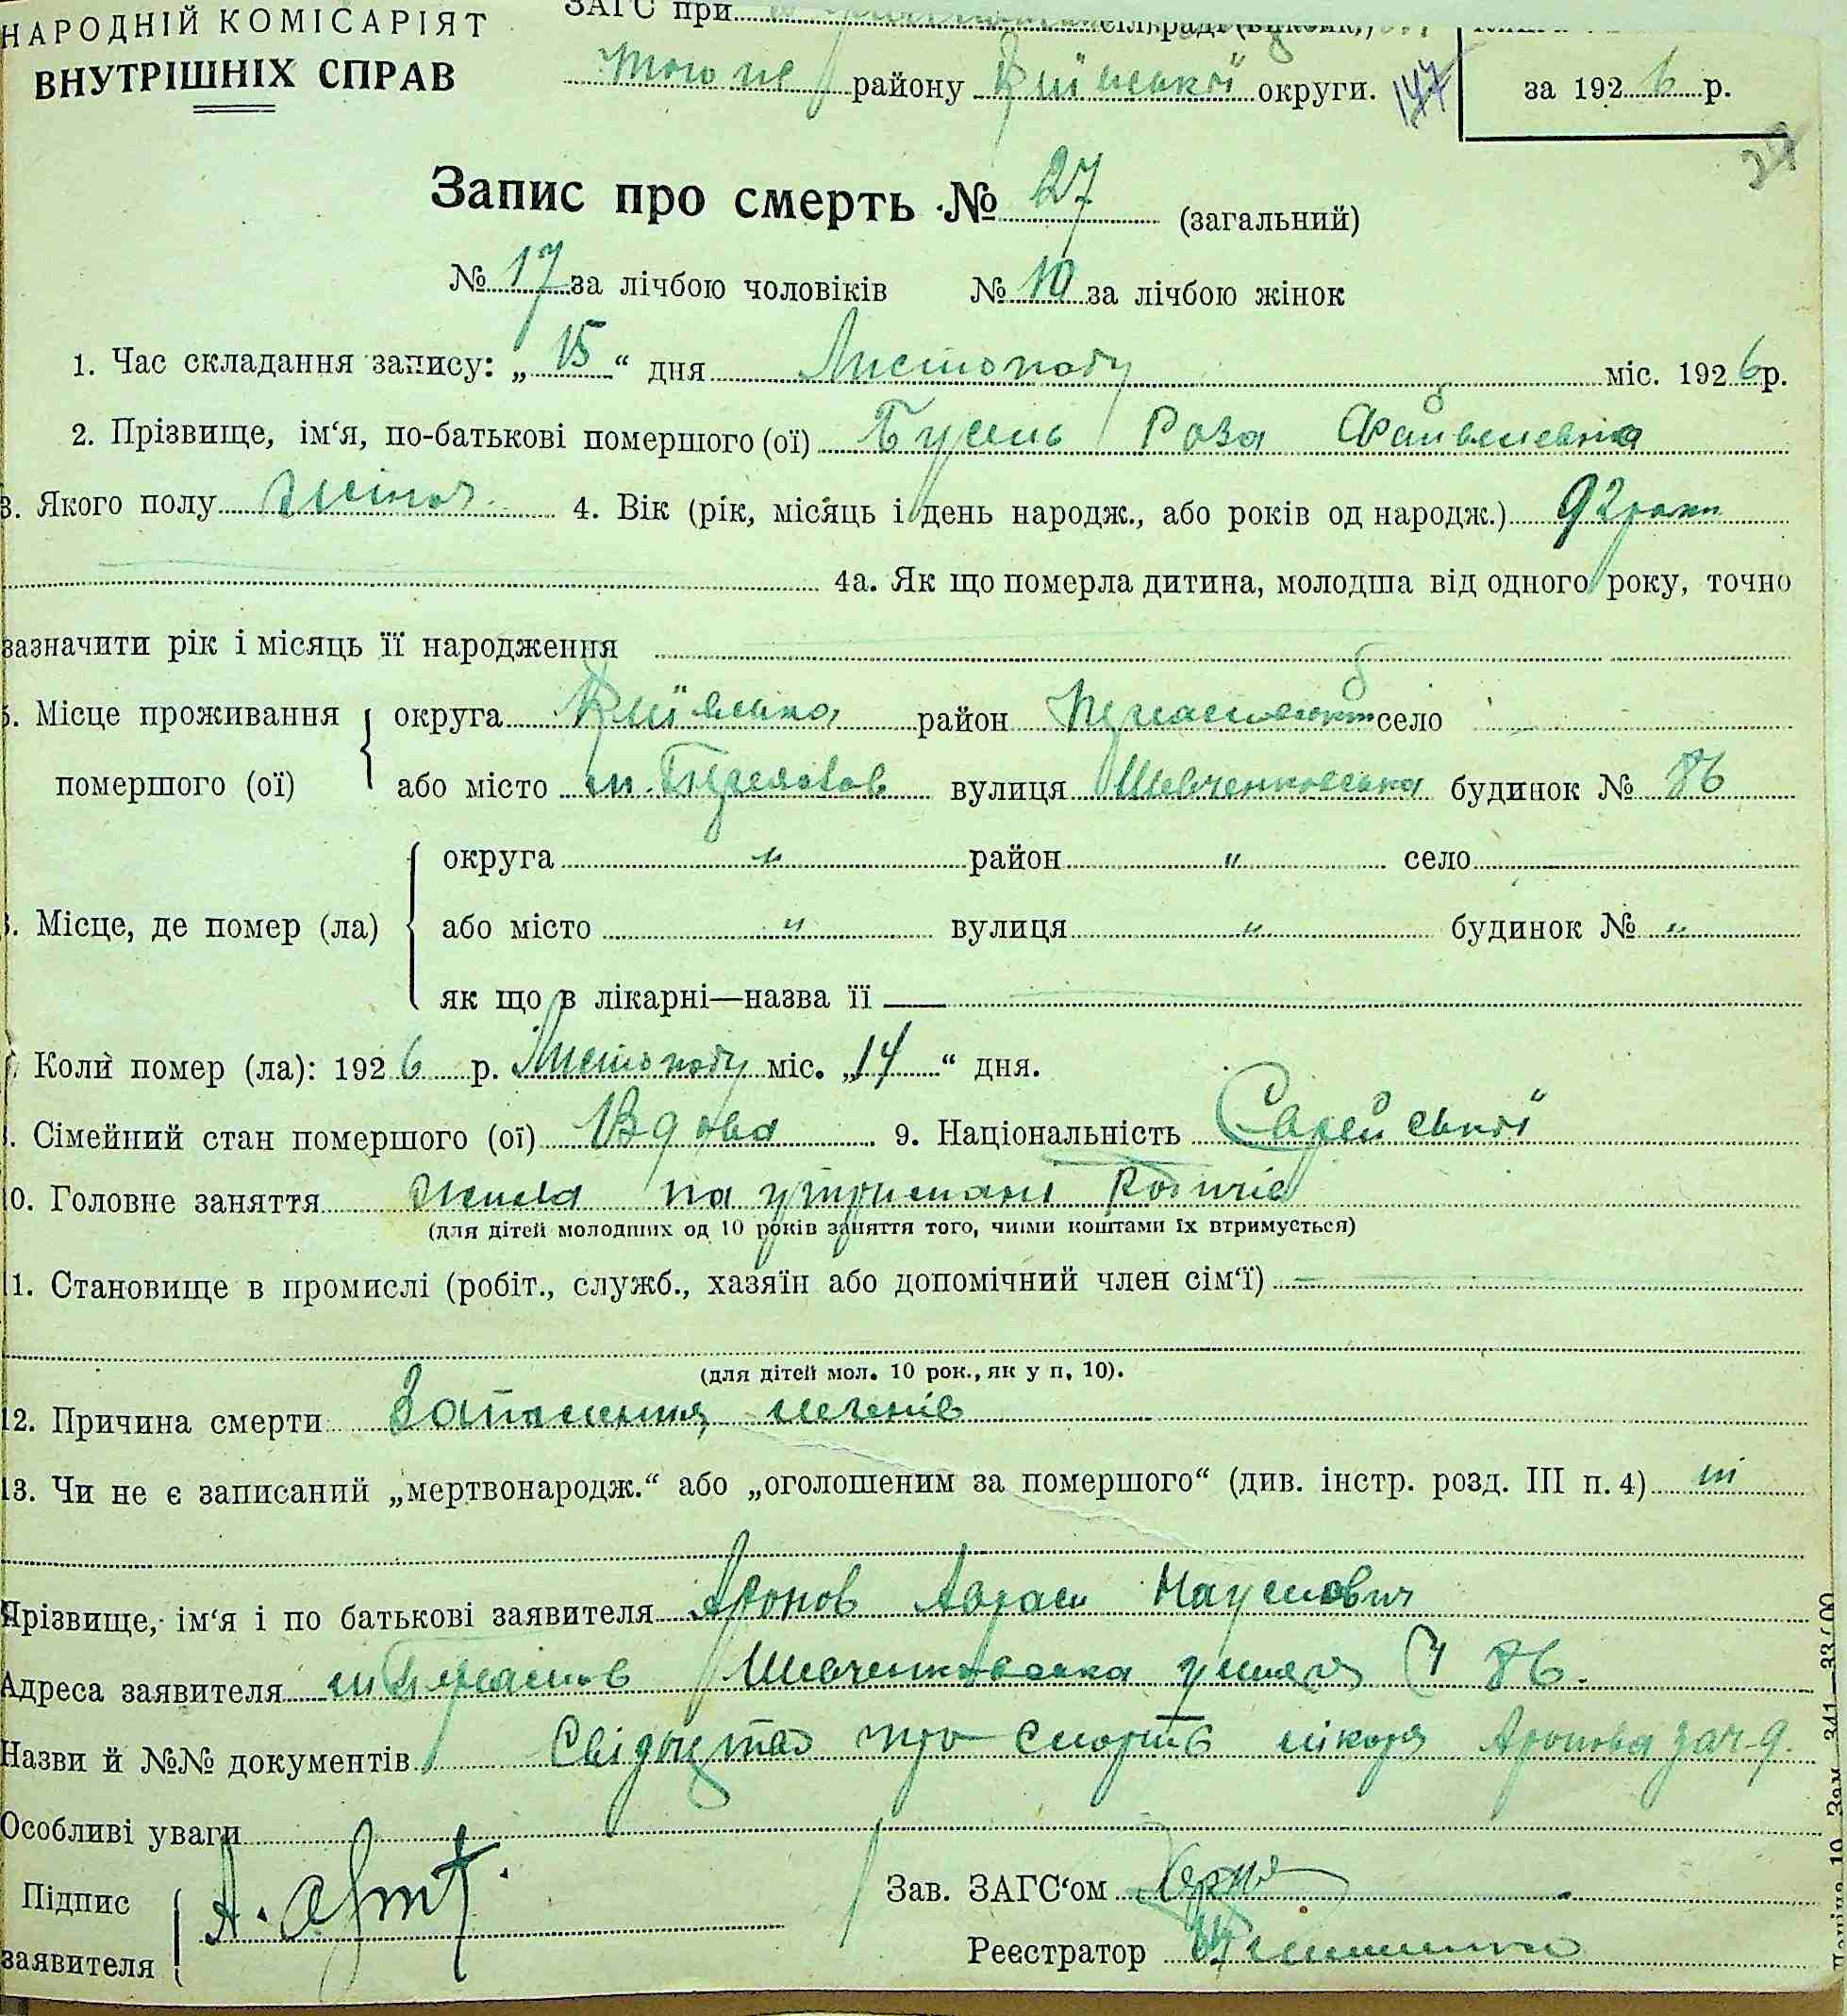 НАРОДНІЙ КОМІСАРІЯТ
ВНУТРІШНІХ СПРАВ
ЗАГС при
Того ж району Київської округи. 147
за 1926 р.
27
Запис про смерть № 27 (загальний)
№ 17 за лічбою чоловіків № 10 за лічбою жінок
1. Час складання запису: „15“ дня Листопаду міс. 1926 р.
2. Прізвище, ім‘я, по-батькові помершого (ої) Бусель Роза
3. Якого полу жіноч. 4. Вік (рік, місяць і день народж., або років од народж.) 92 роки
4а. Як що померла дитина, молодша від одного року, точно
зазначити рік і місяць її народження
5. Місце проживання помершого (ої) округа Київська район село
або місто вулиця Шевченковська будинок № 86
округа " район " село
Місце, де помер (ла) або місто " вулиця " будинок № "
як що в лікарні—назва її
Коли помер (ла): 1926 р. Листопаду міс. „14“ дня.
Сімейний стан помершого (ої) Вдова 9. Національність Єврейської
10. Головне заняття на утримані Родичів
(для дітей молодших од 10 років заняття того, чиїми коштами їх втримується)
11. Становище в промислі (робіт., служб., хазяїн або допомічний член сім‘ї) —
(для дітей мол. 10 рок., як у п. 10).
12. Причина смерти Запалення легенів
13. Чи не є записаний „мертвонародж.“ або „оголошеним за помершого“ (див. інстр. розд. III п. 4) ні
Прізвище, ім‘я і по батькові заявителя Аронов Аврам Наумович
Адреса заявителя Шевченковська улиця 86.
Назви й №№ документів Свідоцтво про смерть лікаря Аронова за ч 9.
Особливі уваги
Підпис заявителя
Зав. ЗАГС‘ом
Реєстратор